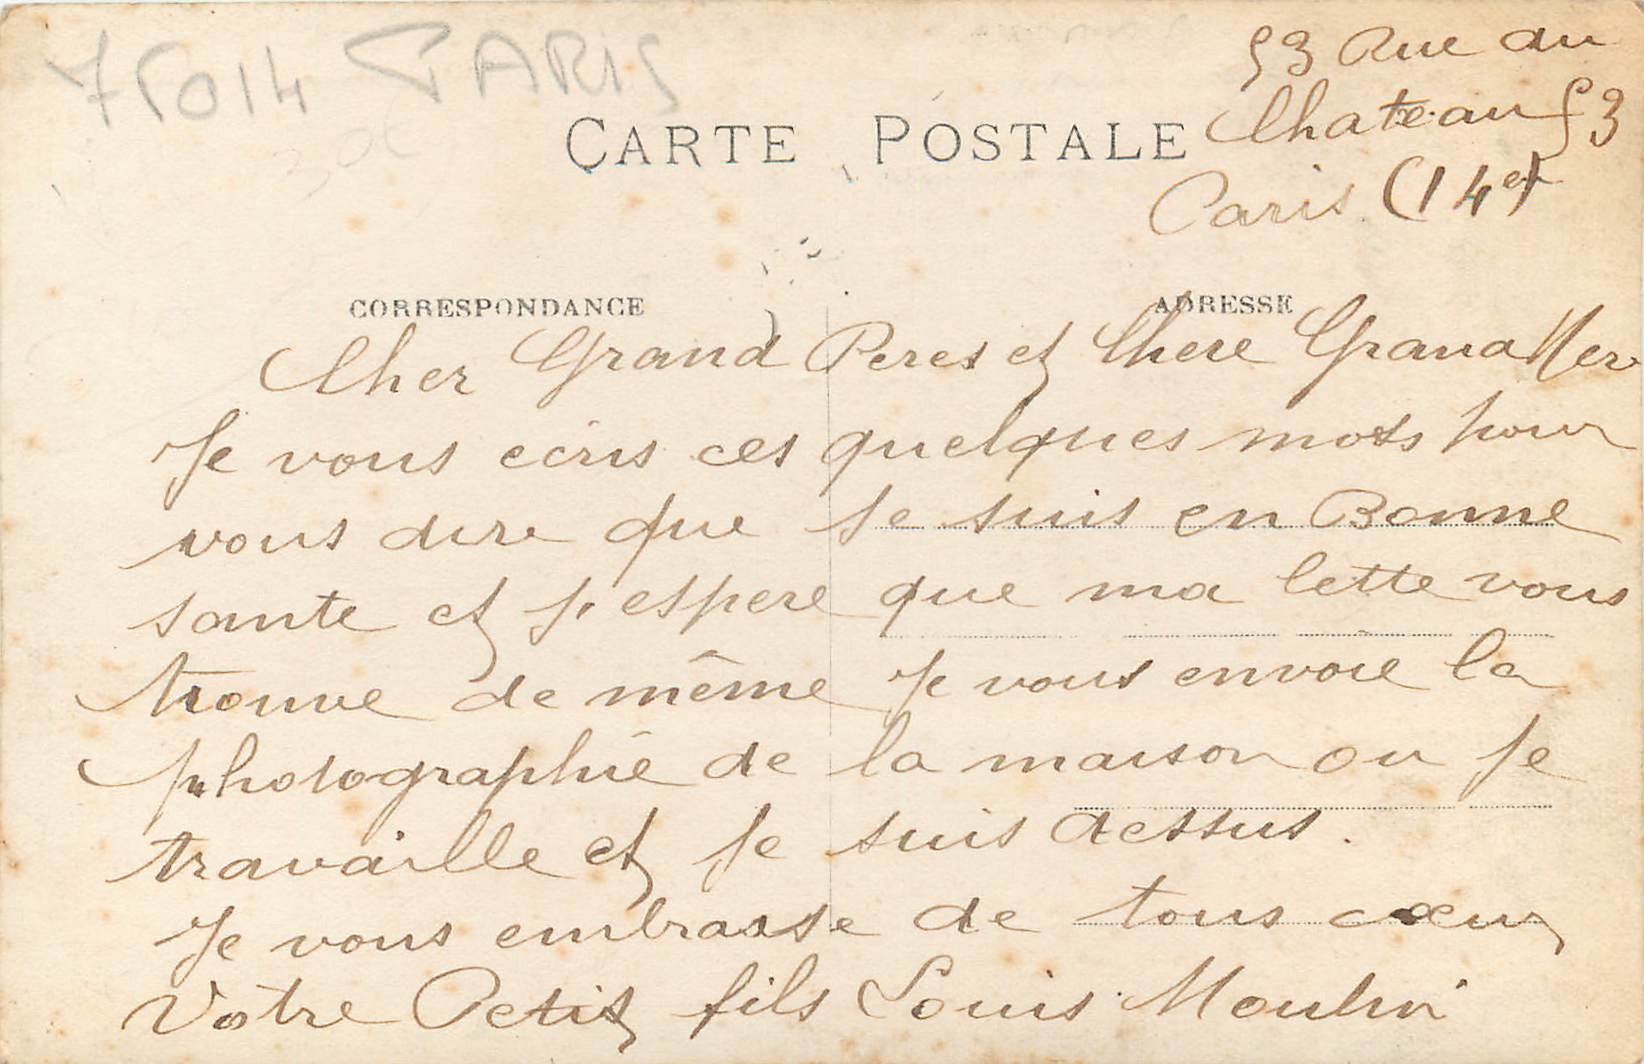 75014 PARIS
53 Rue du
CARTE POSTALE
Chateau 53
Paris (14e)
CORRESPONDANCE
ADRESSE
Cher Grand Peres et Chere Grand Mer
Je vous ecris ces quelques mots pour
vous dire que je suis en Bonne
sante et j'espere que ma lette vous
trouve de même Je vous envoie la
photographie de la maison ou je
travaille et je suis dessus.
Je vous embrasse de tous cœur
Votre Petit fils Louis Moulin